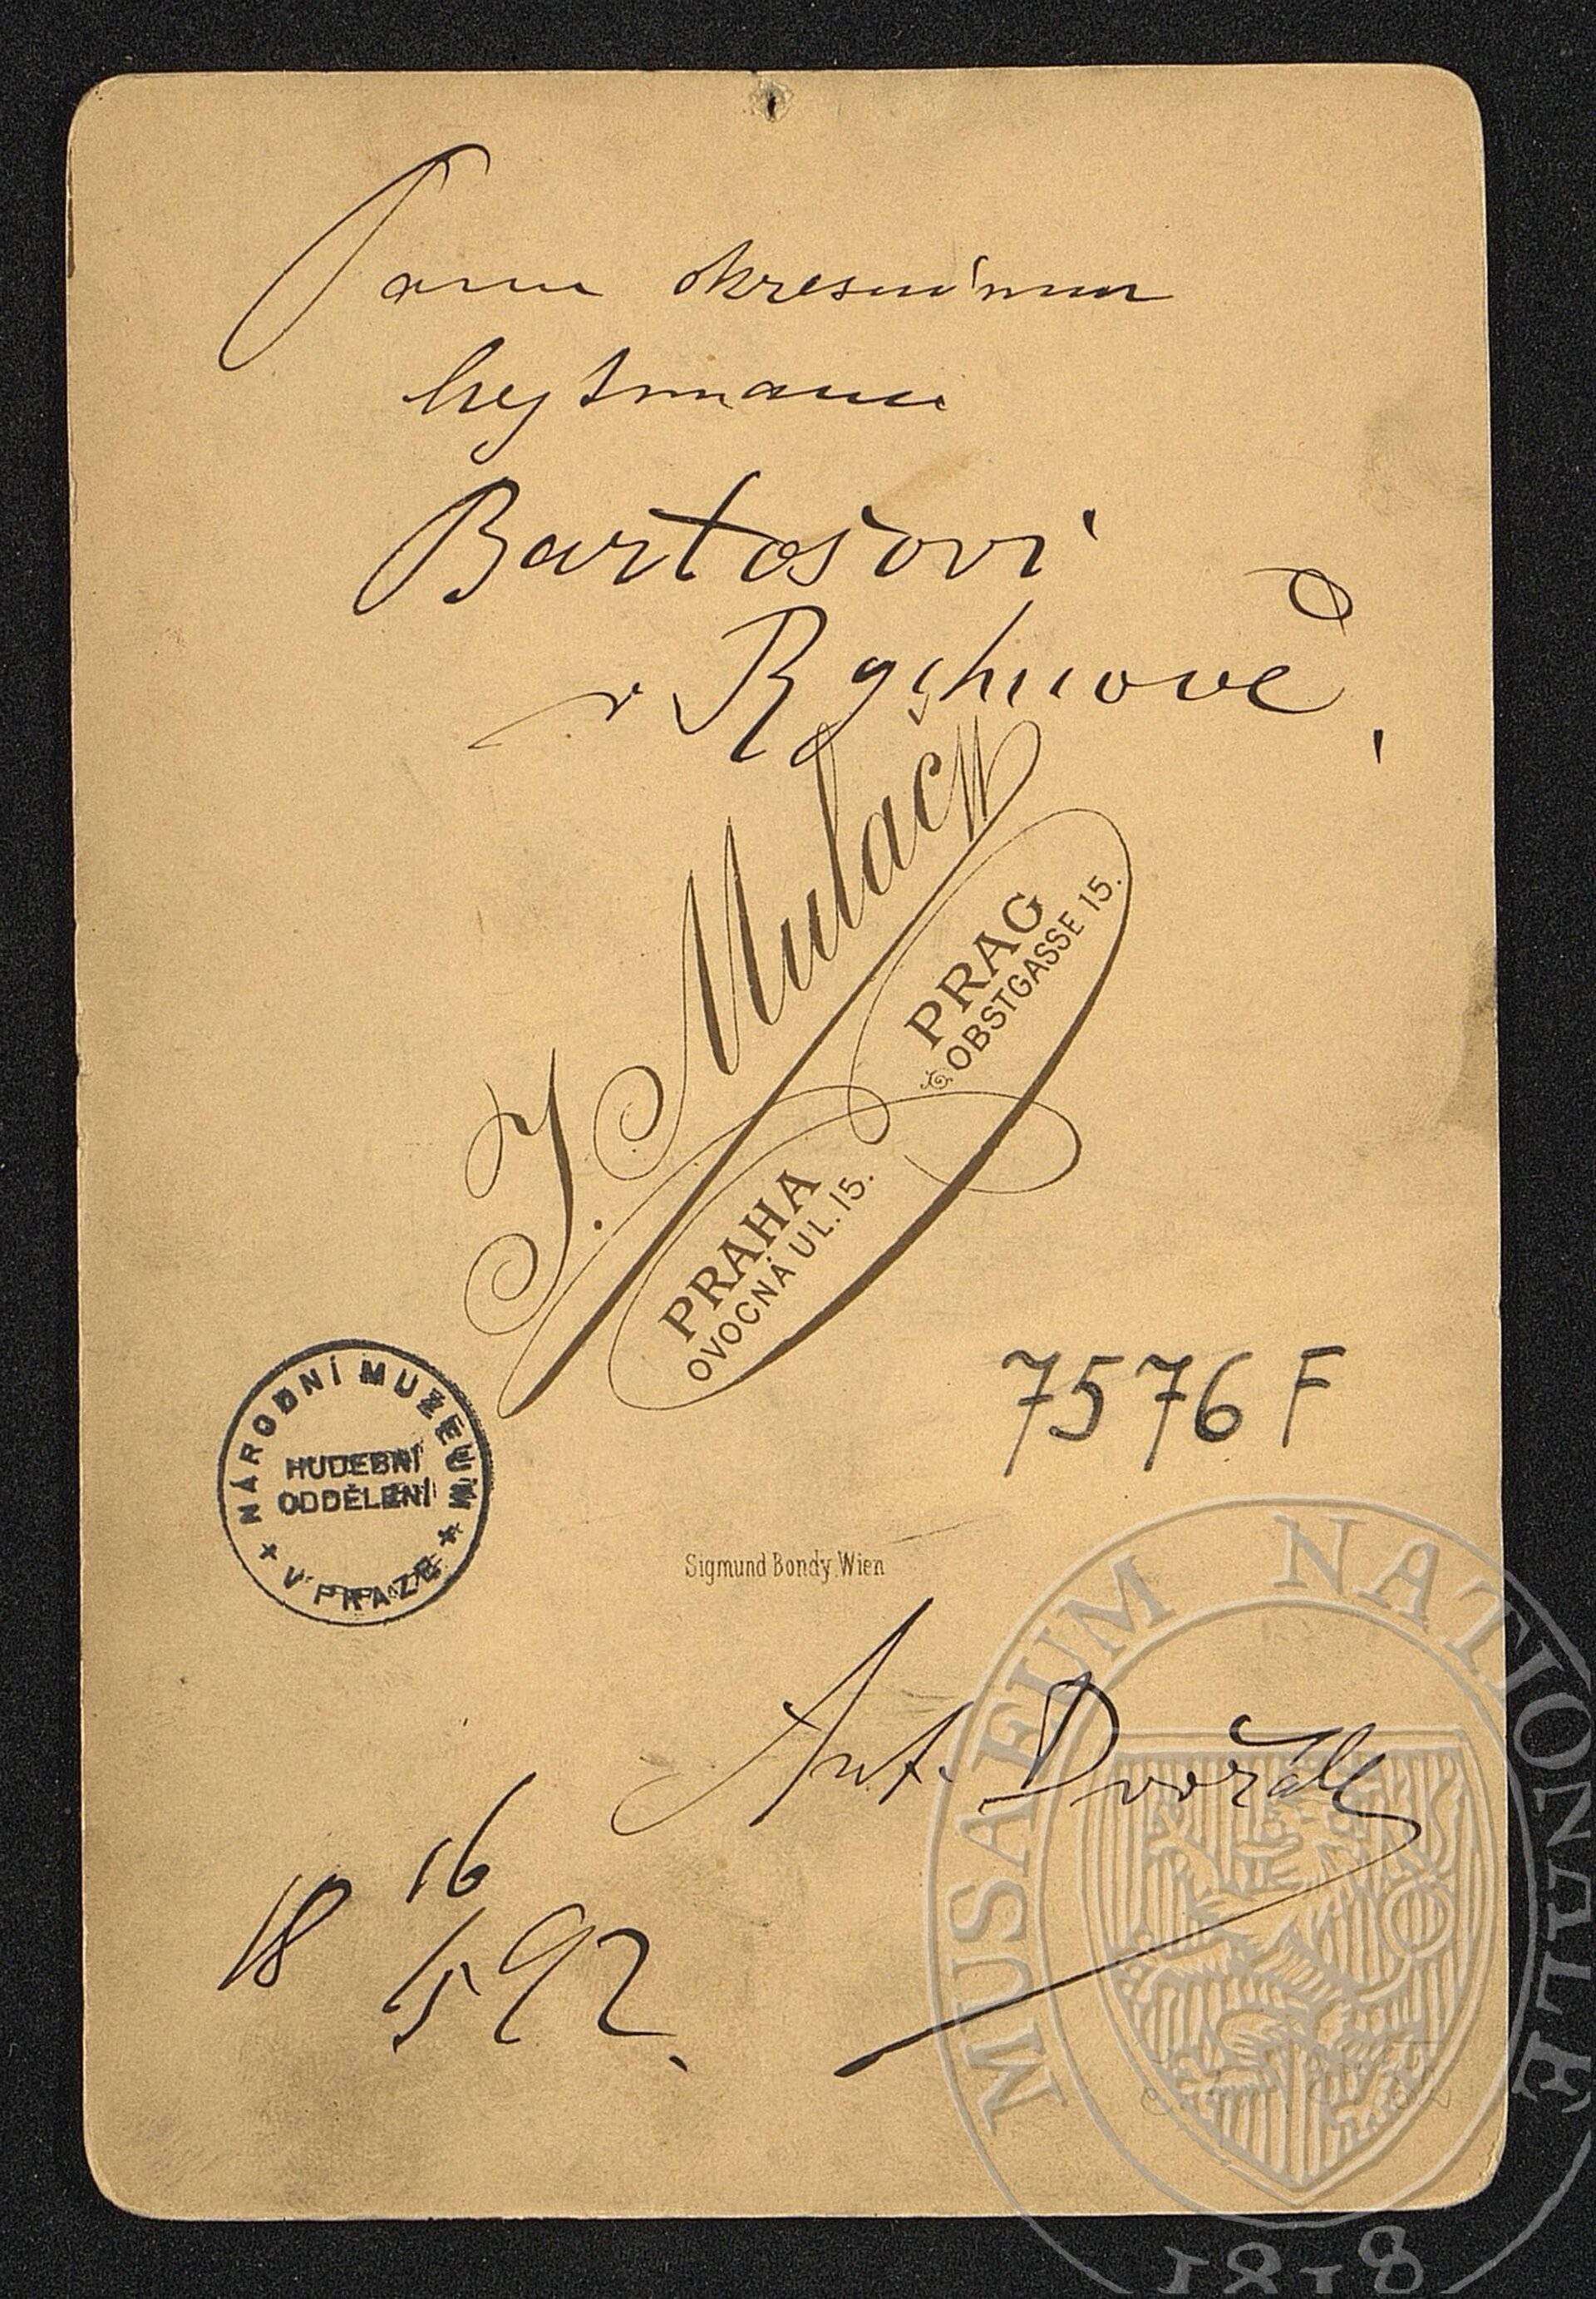 Panu okresnímu
hejtmanu
Bartošovi
v Rychnově,
J. Mulač
PRAG
OBSTGASSE 15.
PRAHA
OVOCNÁ UL. 15.
7576 F
NÁRODNÍ MUZEUM
HUDEBNÍ
ODDĚLENÍ
V PRAZE
Sigmund Bondy. Wien
Ant. Dvořák
18 16/5 92.
MUSAEUM NATIONALE
1818